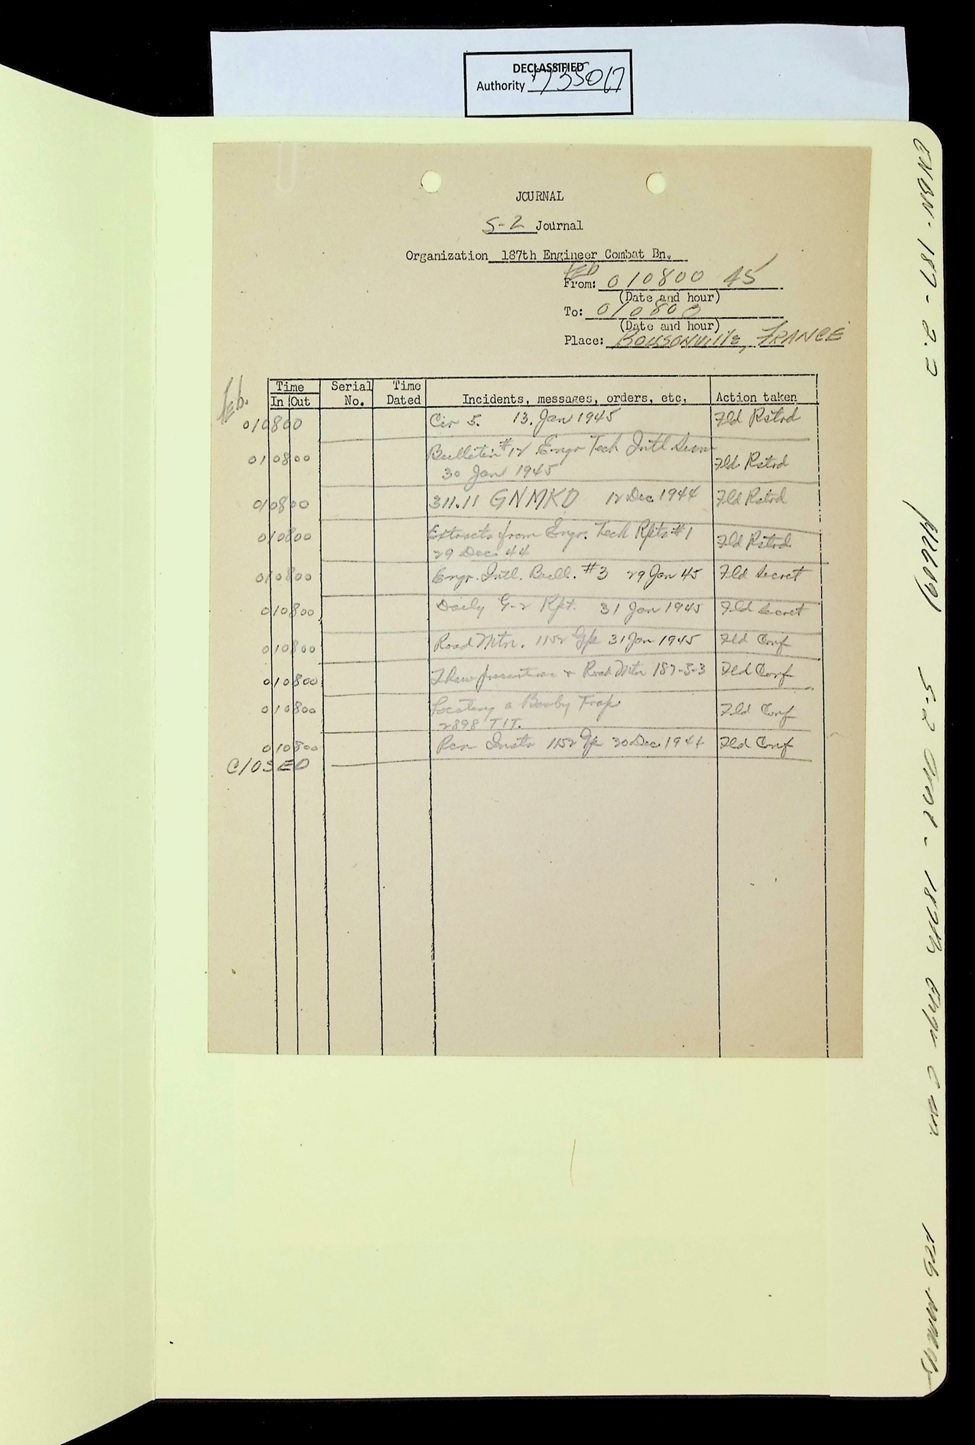 DECLASSIFIED
Authority 735017
JOURNAL
S-2 Journal
Organization 187th Engineer Combat Bn.
Feb
From: 010800 45
(Date and hour)
To: 010800
(Date and hour)
Place: Bousonville, FRANCE
Feb.
Time Serial Time
In Out No. Dated Incidents, messages, orders, etc. Action taken
010800 Cir 5. 13 Jan 1945 Fld Rstrd
010800 Bulletin #12 Engr Tech Intl
30 Jan 1945 Fld Rstrd
010800 311.11 GNMKD 12 Dec 1944 Fld Rstrd
010800 Extracts from Engr. Tech Rpts #1
29 Dec 44 Fld Rstrd
010800 Engr. Intl. Bull. #3 29 Jan 45 Fld Secret
010800 Daily G-2 Rpt. 31 Jan 1945 Fld Secret
010800 Road Mtn. 1152 Gp 31 Jan 1945 Fld Conf
010800 & Road Mtn 187-S-3 Fld Conf
010800 Locating a Booby Trap
2898 T.I.T. Fld Conf
010800 Rcn Instr 1152 Gp 30 Dec 1944 Fld Conf
CLOSED
ENBN-187-2.2
S-2 - 187th Engr C Bn